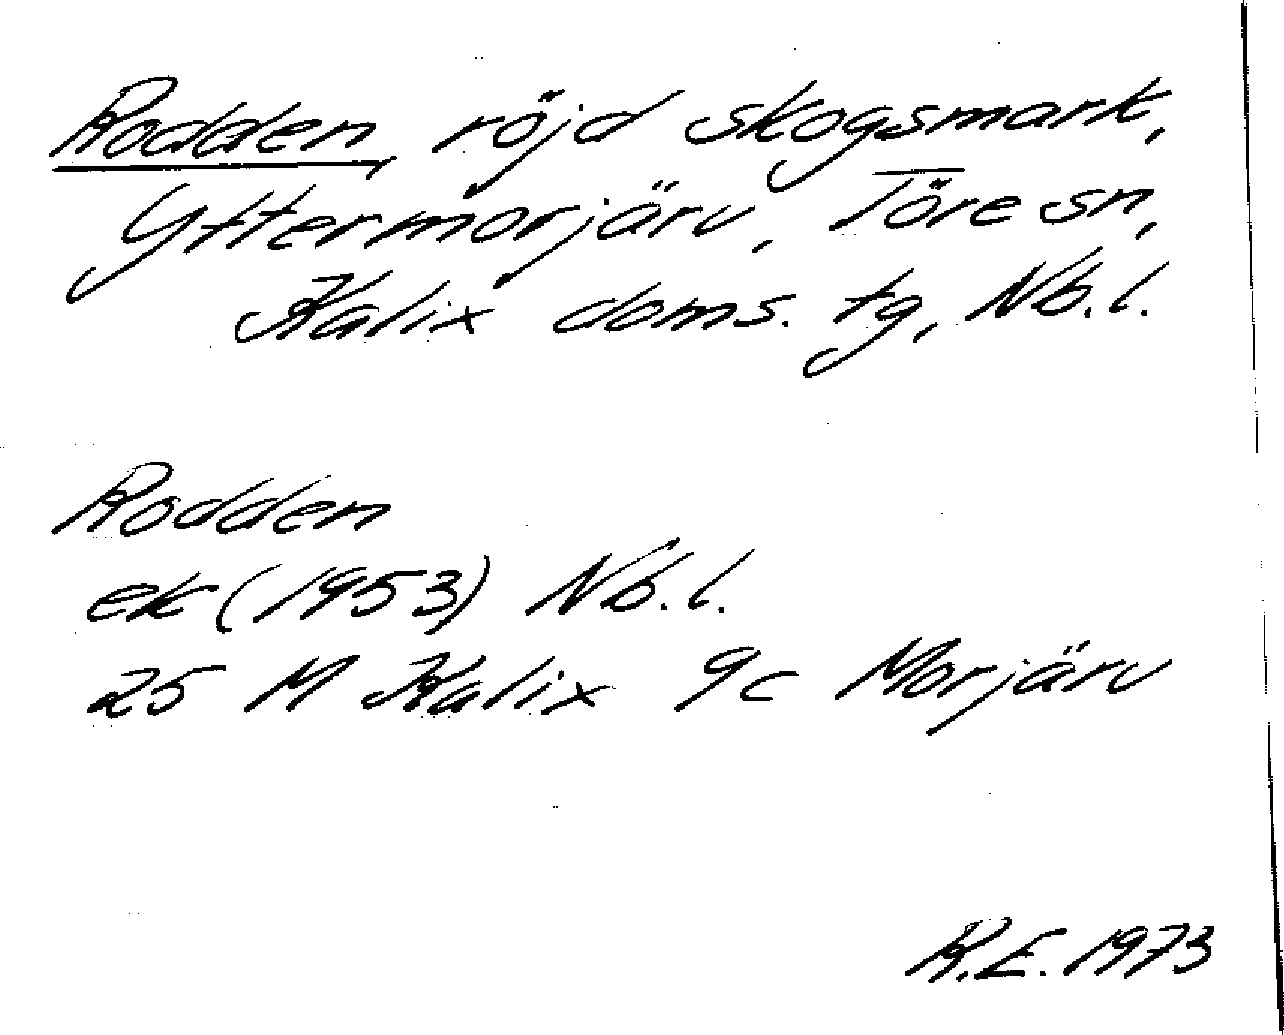 Rodden, röjd skogsmark,
Yttermorjärv, Töre sn,
Kalix doms. tg, Nb.l.
Rodden
ek (1953) Nb.l.
25 M Kalix 9c Morjärv
R.E. 1973